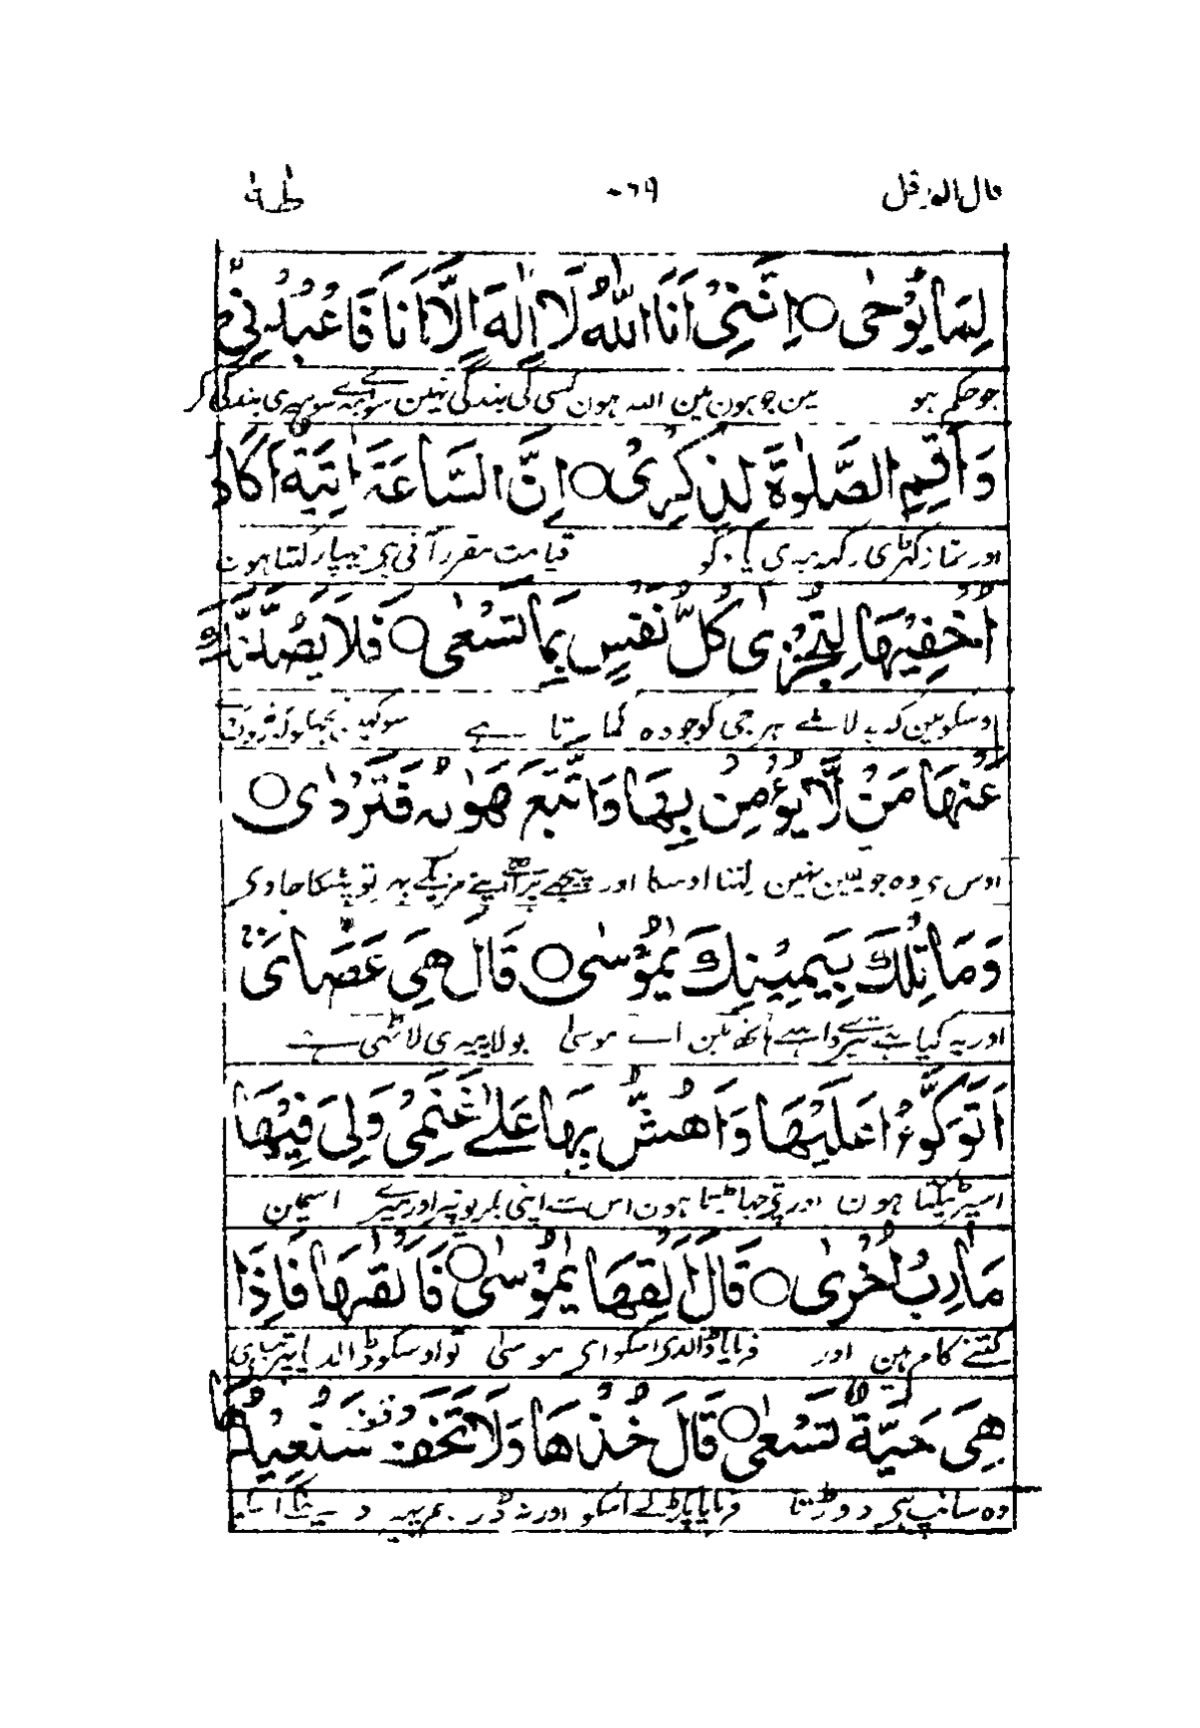 قال الم قل ٦٩ طٰهٰ
لِمَا يُوْحٰى ○ اِنَّنِيْ اَنَا اللّٰهُ لَا اِلٰهَ اِلَّا اَنَا فَاعْبُدْنِيْ
جو حکم ہو مین جو ہون مین اللہ ہون کسی کی بندگی نہین سوائے میرے سو میری بندگی کر
وَاَقِمِ الصَّلٰوةَ لِذِكْرِيْ ○ اِنَّ السَّاعَةَ اٰتِيَةٌ اَكَادُ
اور نماز کھڑی رکھ میری یاد کو قیامت مقرر آنی ہے چھپا رکھتا ہون
اُخْفِيْهَا لِتُجْزٰى كُلُّ نَفْسٍ بِمَا تَسْعٰى ○ فَلَا يَصُدَّنَّكَ
اوسکو مین کہ بدلا ملے ہر جی کو جو وہ کماتا ہے سو کہین نہ
عَنْهَا مَنْ لَّا يُؤْمِنُ بِهَا وَاتَّبَعَ هَوٰىهُ فَتَرْدٰى ○
اوس سے وہ جو یقین نہین لتنا اوسکا اور پیچھے پڑا اپنے مزیکے پہر تو پٹکا جاوی
وَمَا تِلْكَ بِيَمِيْنِكَ يٰمُوْسٰى ○ قَالَ هِيَ عَصَايَ
اور یہ کیا ہے تیرے داہنے ہاتھ مین اے موسیٰ بولا یہ میری لاٹھی ہے
اَتَوَكَّؤُا عَلَيْهَا وَاَهُشُّ بِهَا عَلٰى غَنَمِيْ وَلِيَ فِيْهَا
اسپر ٹیکتا ہون اور پتے جہاڑتا ہون اس سے اپنی بکریونپر اور میرے اسمین
مَاٰرِبُ اُخْرٰى ○ قَالَ اَلْقِهَا يٰمُوْسٰى ○ فَاَلْقٰىهَا فَاِذَا
کتنے کام ہین اور فرمایا ڈالدی اسکو اے موسیٰ تو اوسکو ڈالدیا پھر تبہی
هِيَ حَيَّةٌ تَسْعٰى ○ قَالَ خُذْهَا وَلَا تَخَفْ سَنُعِيْدُهَا
وہ سانپ ہے دوڑتا فرمایا پکڑلے اسکو اور نہ ڈر ہم پہیر دینگے اسکو